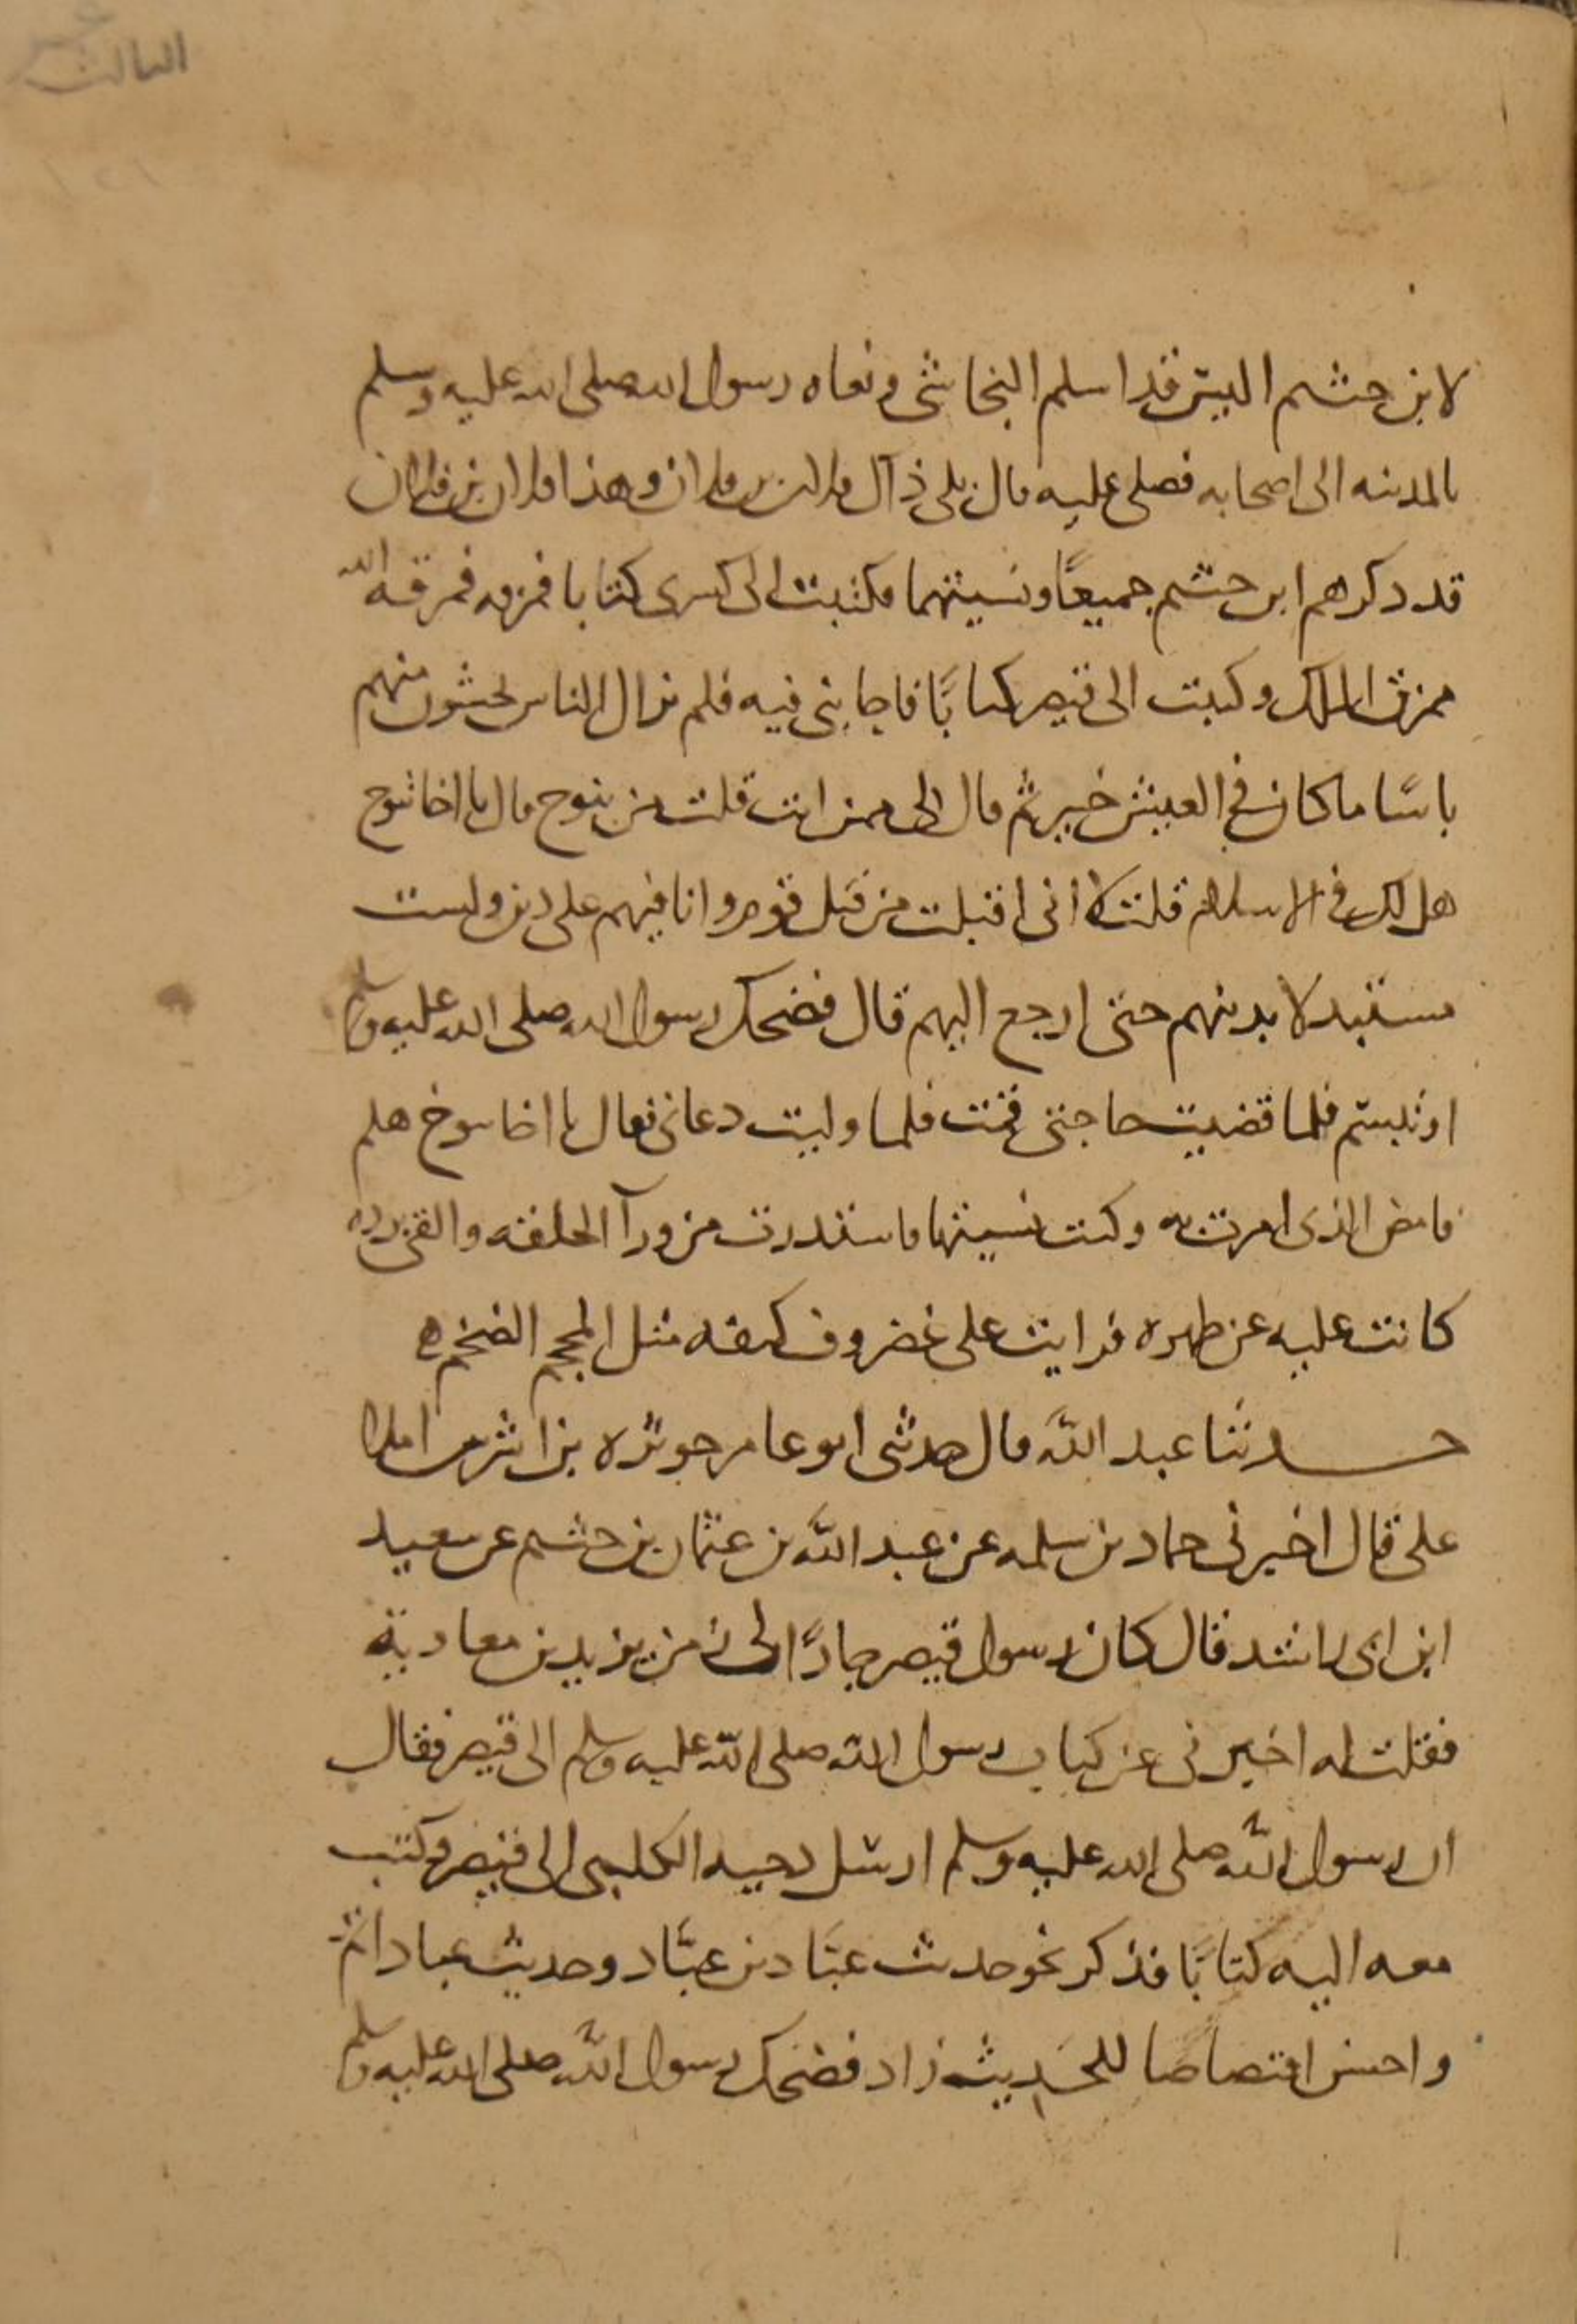 الثالث عشر
لابن خثيم اليس قد اسلم النجاشي ونعاه رسول الله صلى الله عليه وسلم
بالمدينه الى اصحابه فصلى عليه قال بلى ذآك فلان بن فلان وهذا فلان بن فلان
قد ذكرهم ابن خثيم جميعًا ونسيتهما وكتبت الى كسرى كتابا فمزقه فمزقه الله
ممزق الملك وكتبت الى قيصر كتابًا فاجابني فيه فلم تزال الناس يخشون منهم
باسًا ما كان في العيش خير ثم قال لي ممن انت قلت من تنوخ قال يا اخا تنوخ
هل لك في الاسلام قلت لا اني اقبلت من قبل قوم وانا فيهم على دين ولست
مستبدلا بدينهم حتى ارجع اليهم قال فضحك رسول الله صلى الله عليه وسلم
او تبسم فلما قضيت حاجتي قمت فلما وليت دعاني فقال يا اخا تنوخ هلم
فامض للذي امرت به وكنت نسيتها فاستدرت من ورآ الحلقه والقى برده
كانت عليه عن ظهره فرايت على غضروف كتفه مثل المحجم الضخم ه
حدثنا عبد الله قال حدثني ابو عامر حوثره بن اشرس املا
علي قال اخبرني حماد بن سلمه عن عبد الله بن عثمان بن خثيم عن سعيد
ابن ابي راشد قال كان رسول قيصر جارًا لي زمن يزيد بن معاوية
فقلت له اخبرني عن كتاب رسول الله صلى الله عليه وسلم الى قيصر فقال
ان رسول الله صلى الله عليه وسلم ارسل دحيه الكلبي الى قيصر وكتب
معه اليه كتابًا فذكر نحو حديث عبّاد بن عبّاد وحديث عباد اتم
واحسن اقتصاصا للحديث زاد فضحك رسول الله صلى الله عليه وسلم